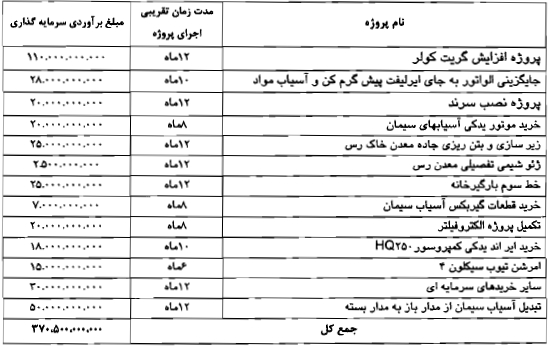 نام پروژه	مدت زمان تقریبی اجرای پروژه	مبلغ برآوردی سرمایه گذاری
پروژه افزایش گریت کولر	۱۲ماه	۱۱۰.۰۰۰.۰۰۰.۰۰۰
جایگزینی الواتور به جای ایرلیفت پیش گرم کن و آسیاب مواد	۱۰ماه	۲۸.۰۰۰.۰۰۰.۰۰۰
پروژه نصب سرند	۱۲ماه	۲۰.۰۰۰.۰۰۰.۰۰۰
خرید موتور یدکی آسیابهای سیمان	۸ماه	۲۰.۰۰۰.۰۰۰.۰۰۰
زیر سازی و بتن ریزی جاده معدن خاک رس	۱۲ماه	۲۵.۰۰۰.۰۰۰.۰۰۰
ژئو شیمی تفصیلی معدن رس	۱۲ماه	۲.۵۰۰.۰۰۰.۰۰۰
خط سوم بارگیرخانه	۱۲ماه	۲۵.۰۰۰.۰۰۰.۰۰۰
خرید قطعات گیربکس آسیاب سیمان	۸ماه	۷.۰۰۰.۰۰۰.۰۰۰
تکمیل پروژه الکتروفیلتر	۸ماه	۲۰.۰۰۰.۰۰۰.۰۰۰
خرید ایر اند یدکی کمپروسور HQ۲۵۰	۱۰ماه	۱۸.۰۰۰.۰۰۰.۰۰۰
امرشن تیوب سیکلون ۴	۶ماه	۱۵.۰۰۰.۰۰۰.۰۰۰
سایر خریدهای سرمایه ای	۱۲ماه	۳۰.۰۰۰.۰۰۰.۰۰۰
تبدیل آسیاب سیمان از مدار باز به مدار بسته	۱۲ماه	۵۰.۰۰۰.۰۰۰.۰۰۰
جمع کل	۳۷۰.۵۰۰.۰۰۰.۰۰۰